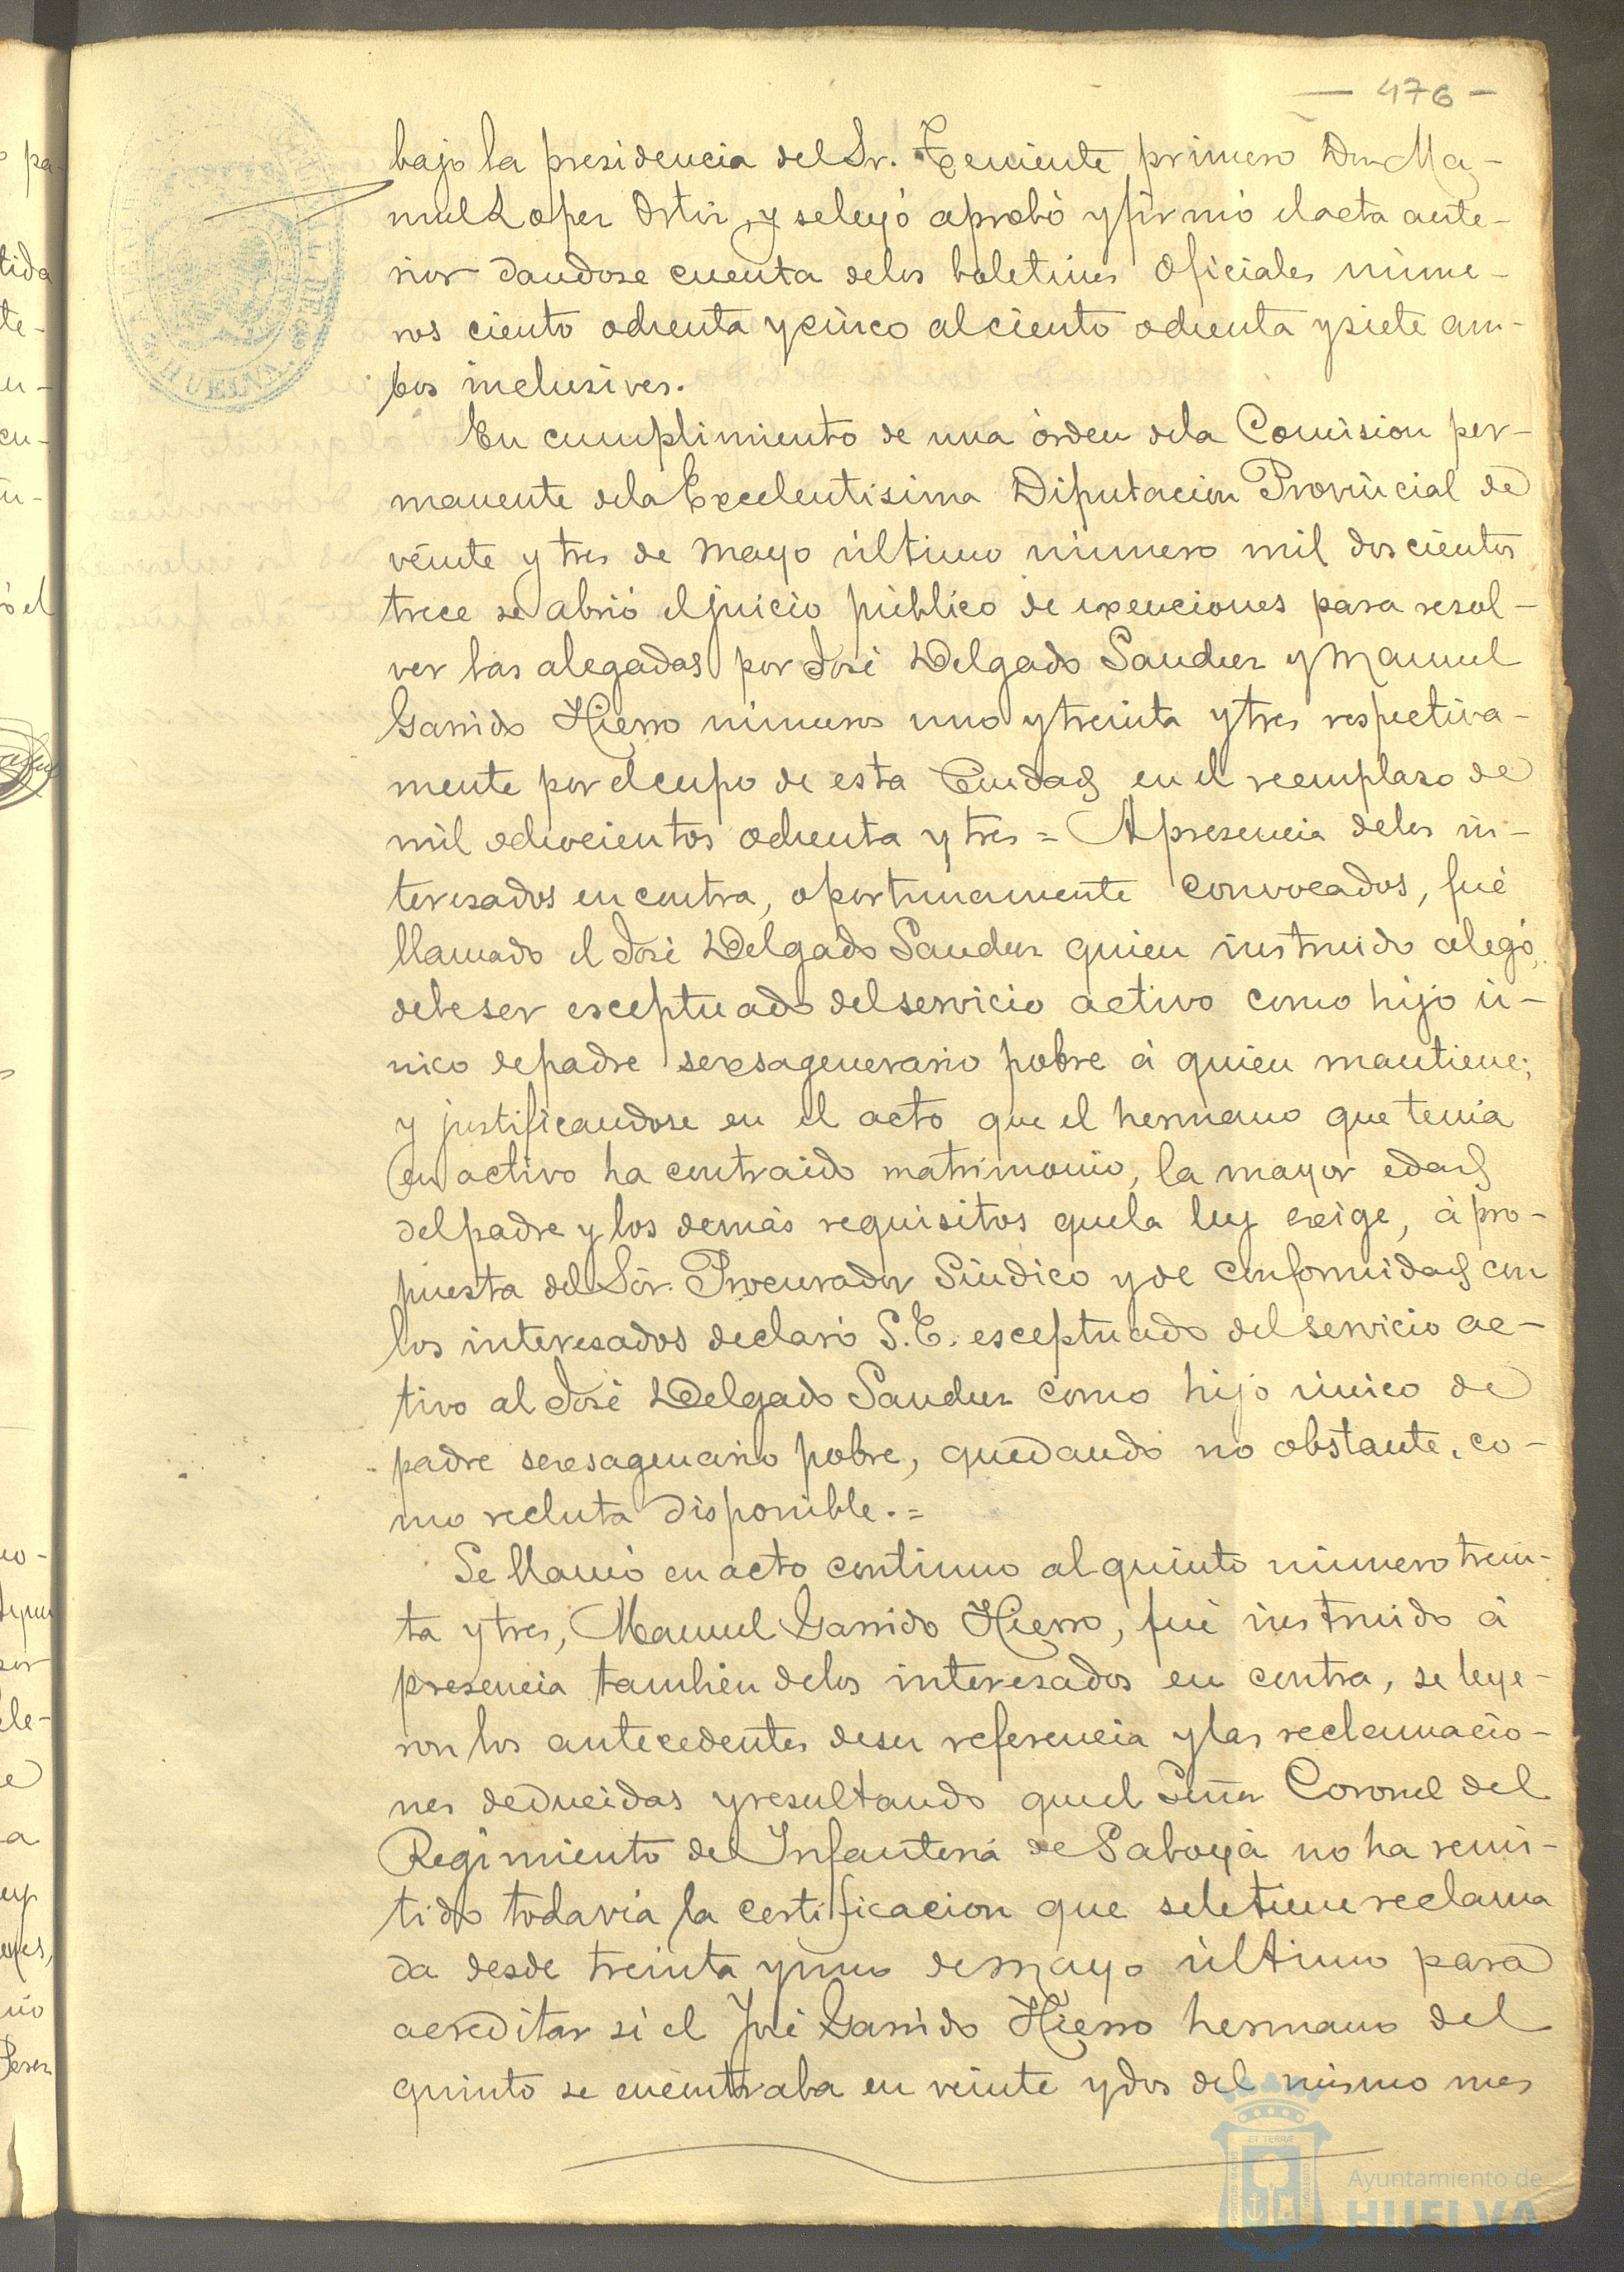 — 476 —
bajo la presidencia del Sr. Teniente primero Don Ma-
nuel Lopez Ortiz, y se leyó aprobó y firmó el acta ante-
rior dandose cuenta de los boletines Oficiales núme-
ros ciento ochenta y cinco al ciento ochenta y siete am-
bos inclusives.
En cumplimiento de una órden de la Comision per-
manente de la Excelentisima Diputacion Provincial de
veinte y tres de Mayo último número mil doscientos
trece se abrió el juicio público de exenciones para resol-
ver las alegadas por José Delgado Sanchez y Manuel
Garrido Hierro números uno y treinta y tres respectiva-
mente por el cupo de esta Ciudad en el reemplazo de
mil ochocientos ochenta y tres = A presencia de los in-
teresados en contra, oportunamente convocados, fué
llamado el José Delgado Sanchez quien instruido alegó,
debe ser esceptuado del servicio activo como hijo ú-
nico de padre sexsagenerario pobre á quien mantiene;
y justificandose en el acto que el hermano que tenia
en activo ha contraido matrimonio, la mayor edad
del padre y los demás requisitos que la ley exige, á pro-
puesta del Sór. Procurador Síndico y de conformidad con
los interesados declaró S.E. esceptuado del servicio ac-
tivo al José Delgado Sanchez como hijo único de
padre sexsagenario pobre, quedando no obstante, co-
mo recluta disponible.=
Se llamó en acto continuo al quinto número trein-
ta y tres, Manuel Garrido Hierro, fué instruido á
presencia tambien de los interesados en contra, se leye-
ron los antecedentes de su referencia y las reclamacio-
nes deducidas y resultando que el Señor Coronel del
Regimiento de Infanteria de Saboya no ha remi-
tido todavia la certificacion que se le tiene reclama
da desde treinta y uno de Mayo último para
acreditar si el José Garrido Hierro hermano del
quinto se encontraba en veinte y dos del mismo mes
HUELVA
Ayuntamiento de
HUELVA